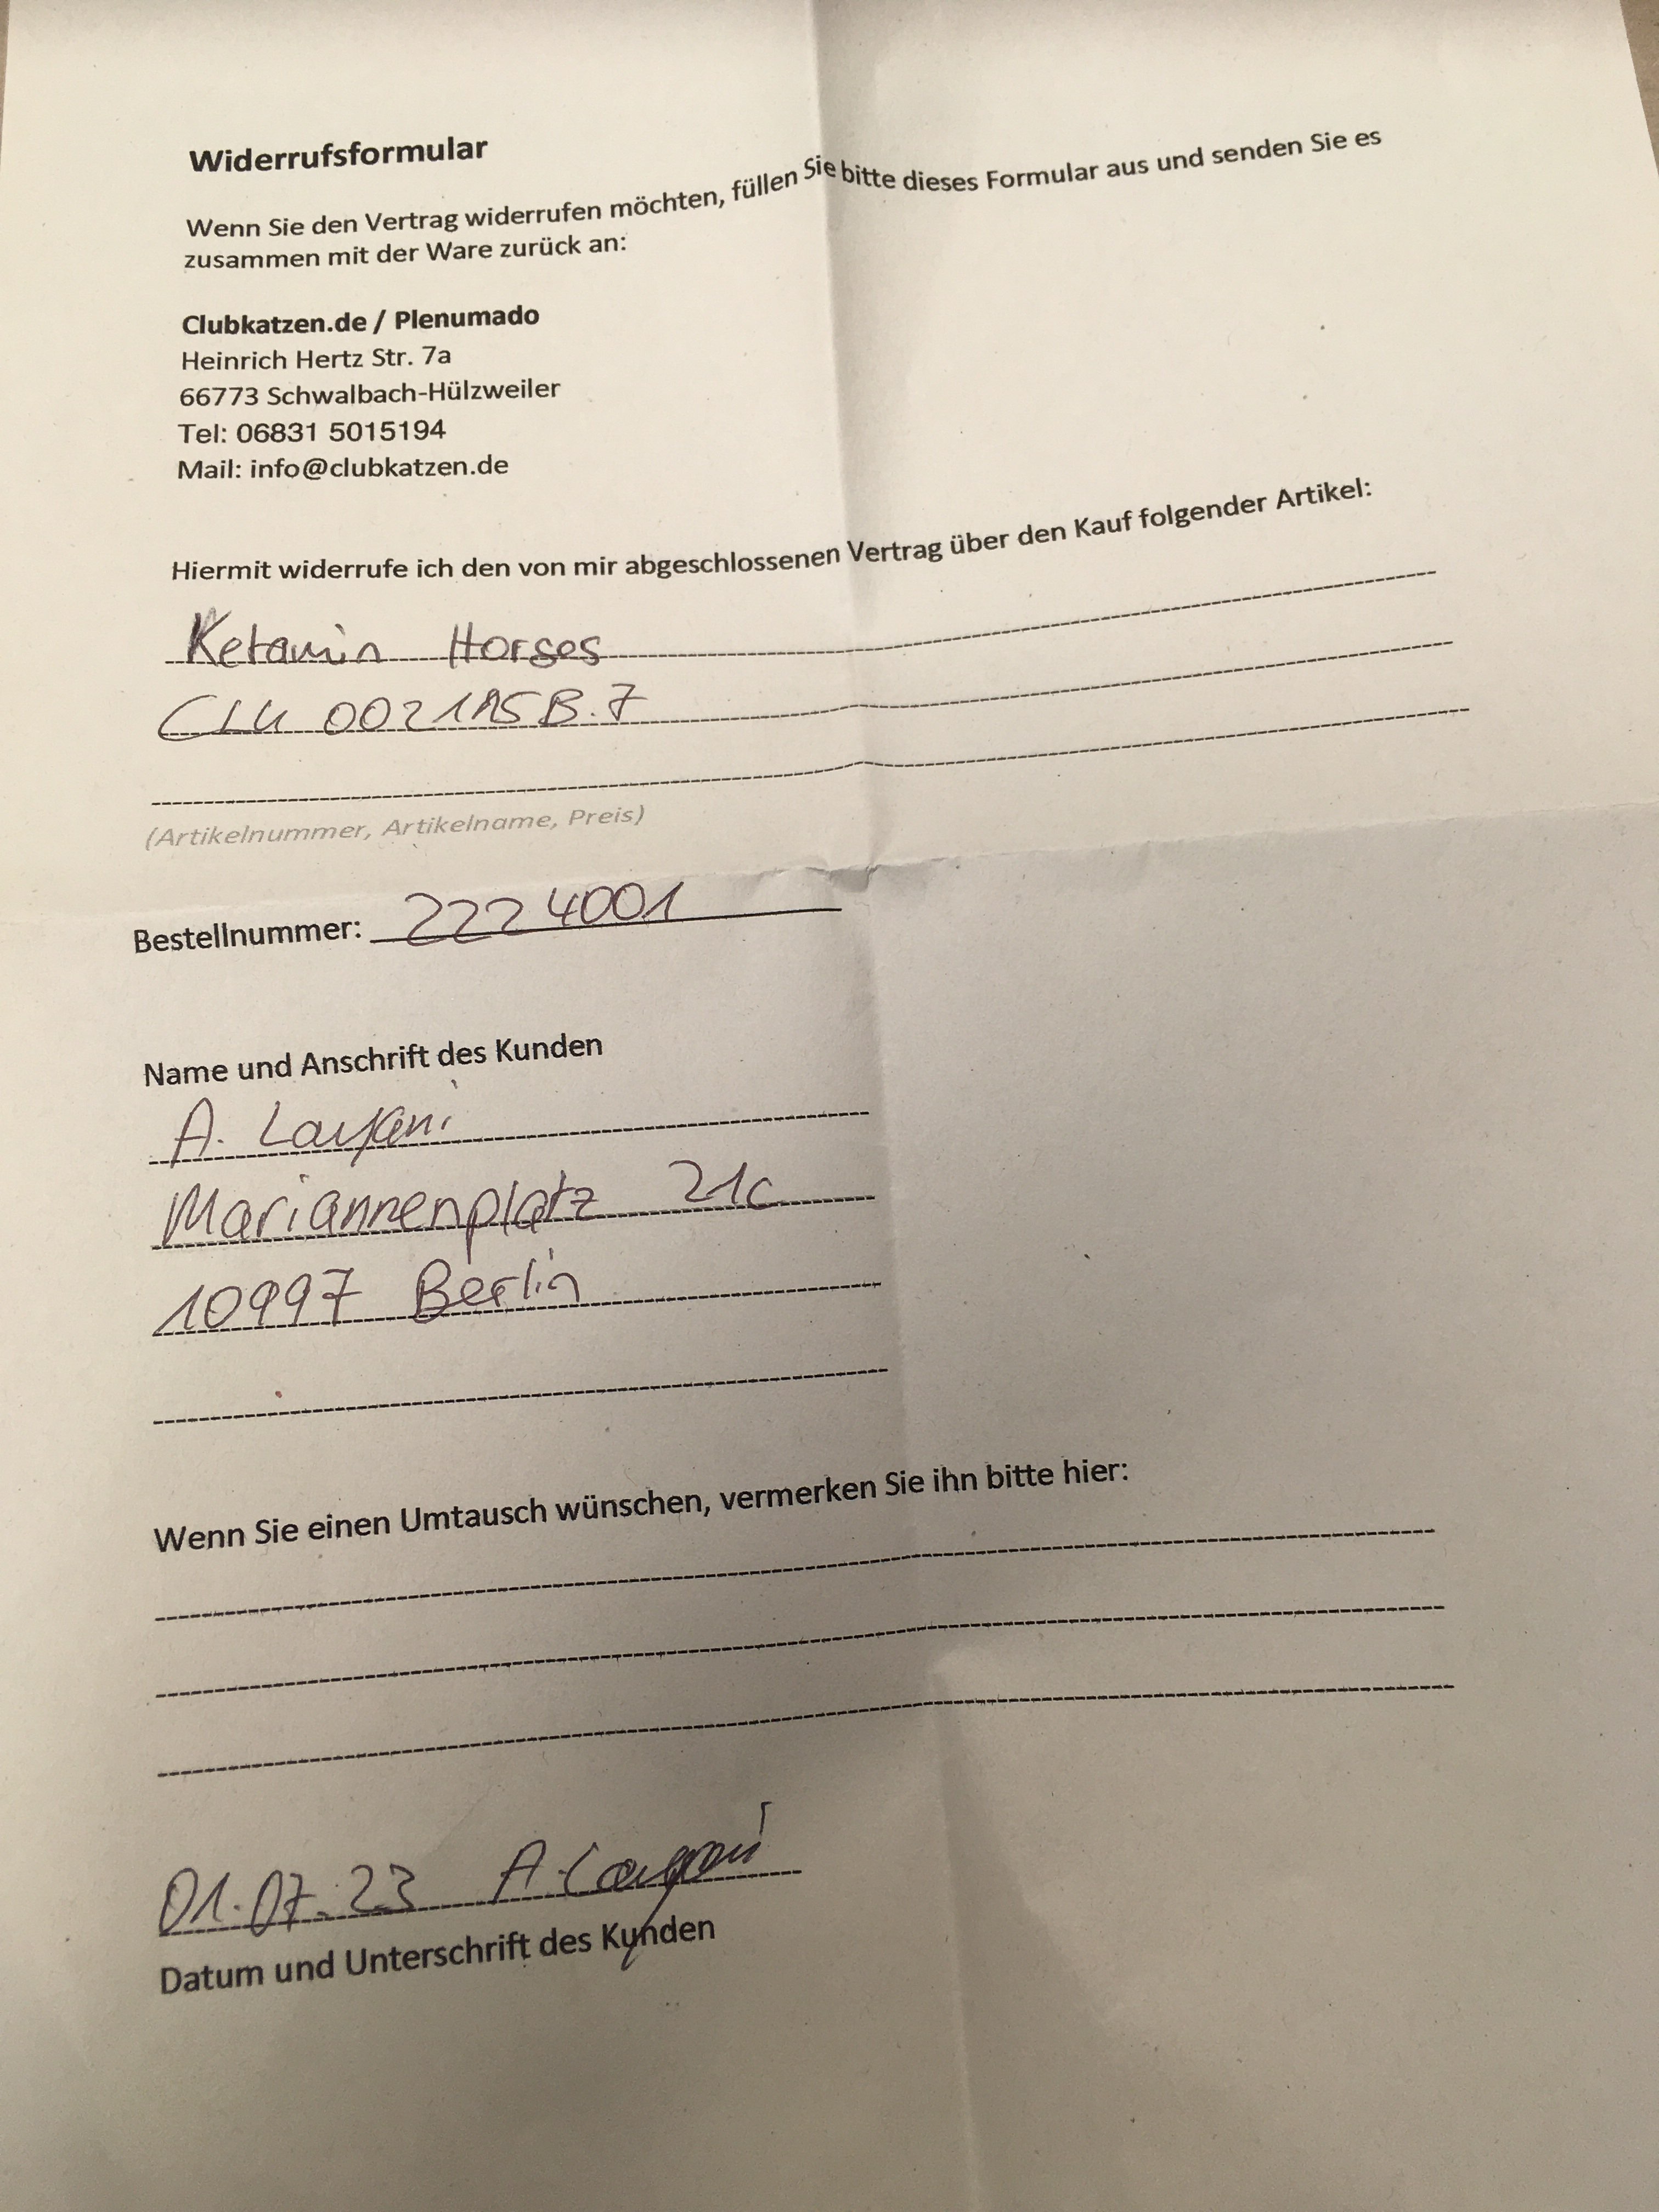 Widerrufsformular
Wenn Sie den Vertrag widerrufen möchten, füllen Sie bitte dieses Formular aus und senden Sie es
zusammen mit der Ware zurück an:
Clubkatzen.de / Plenumado
Heinrich Hertz Str. 7a
66773 Schwalbach-Hülzweiler
Tel: 06831 5015194
Mail: info@clubkatzen.de
Hiermit widerrufe ich den von mir abgeschlossenen Vertrag über den Kauf folgender Artikel:
Ketamin Horses
(Artikelnummer, Artikelname, Preis)
Bestellnummer: 2224001
Name und Anschrift des Kunden
A.
Mariannenplatz 21c
10997 Berlin
Wenn Sie einen Umtausch wünschen, vermerken Sie ihn bitte hier:
01.07.23 A.
Datum und Unterschrift des Kunden